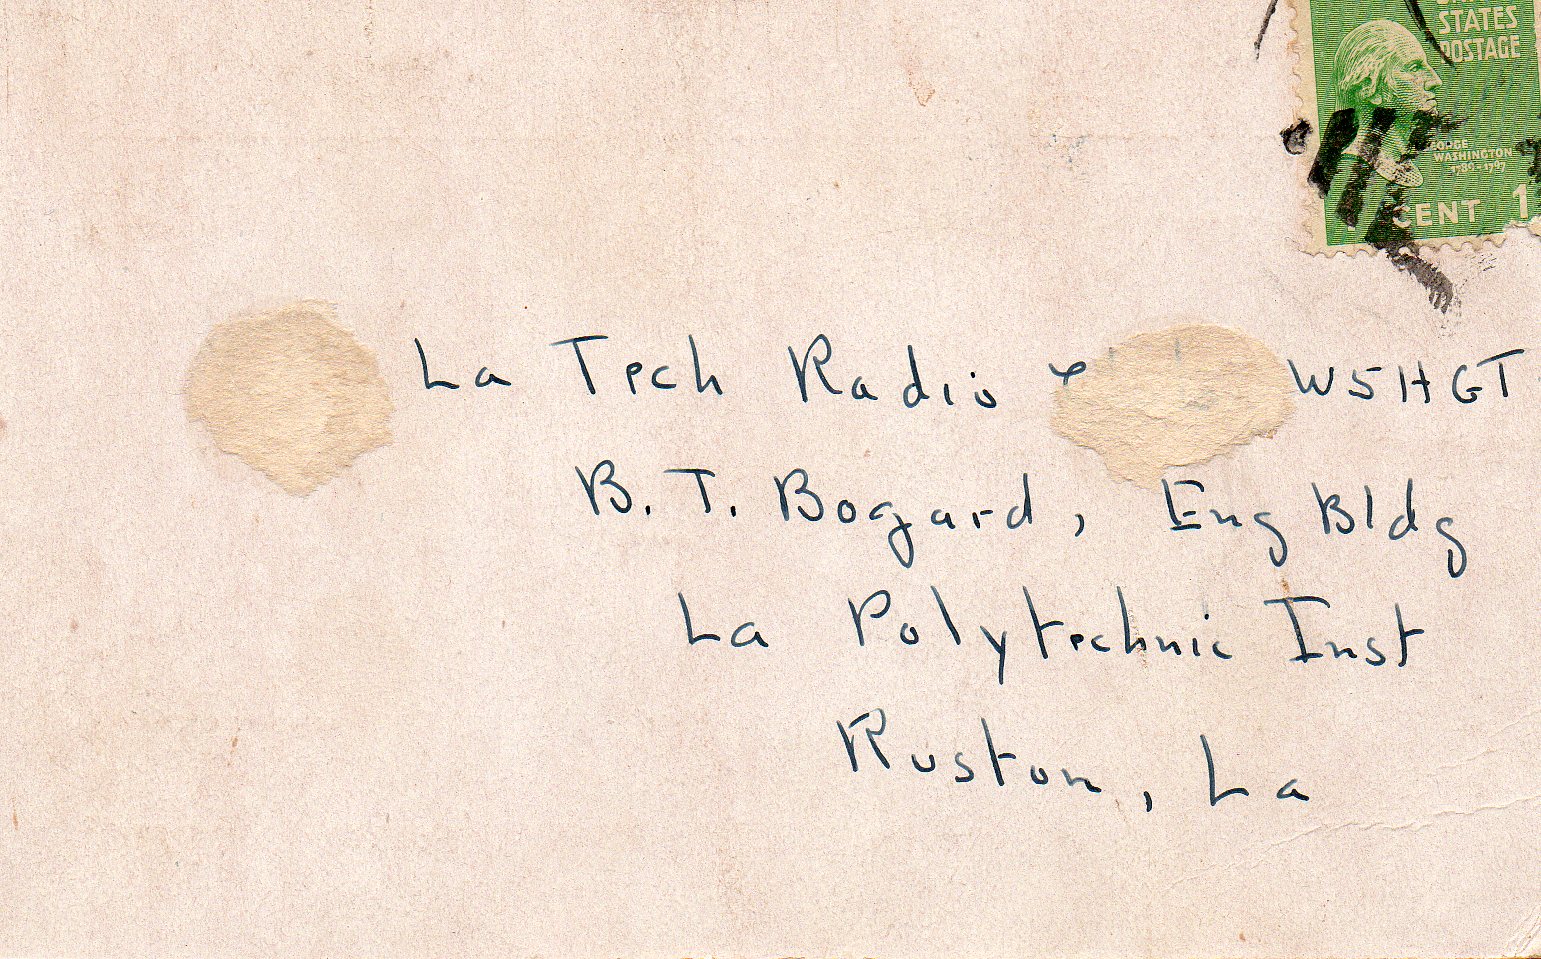 STATES
POSTAGE
WASHINGTON
CENT 1
La Tech Radio W5HGT
B. T. Bogard, Eng Bldg
La Polytechnic Inst
Ruston, La